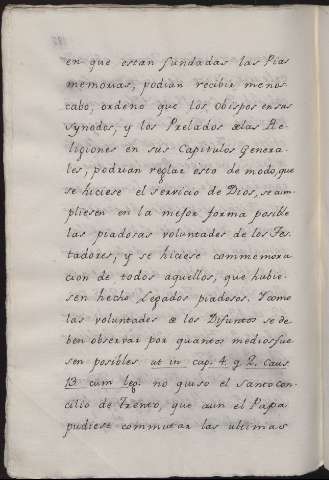 en que estan fundadas las Pias
memorias, podian recibir menos
cabo, ordenò que los obispos en sus
synodos, y los Prelados de las Re-
ligiones en sus Capitulos Genera-
les, podrian reglar esto de modo, que
se hiciese el servicio de Dios, se cum-
pliesen en la mejor forma posible
las piadosas voluntades de los Tes-
tadores, y se hiciese commemora
cion de todos aquellos, que hubie-
sen hecho Legados piadosos. Y como
las voluntades de los Difuntos se de
ben observar por quantos medios fue
sen posibles ut in cap. 4. q. 2. Caus
13. cum leg. no quiso el santo con-
cilio de Trento, que aun el Papa
pudiese commutar las ultimas